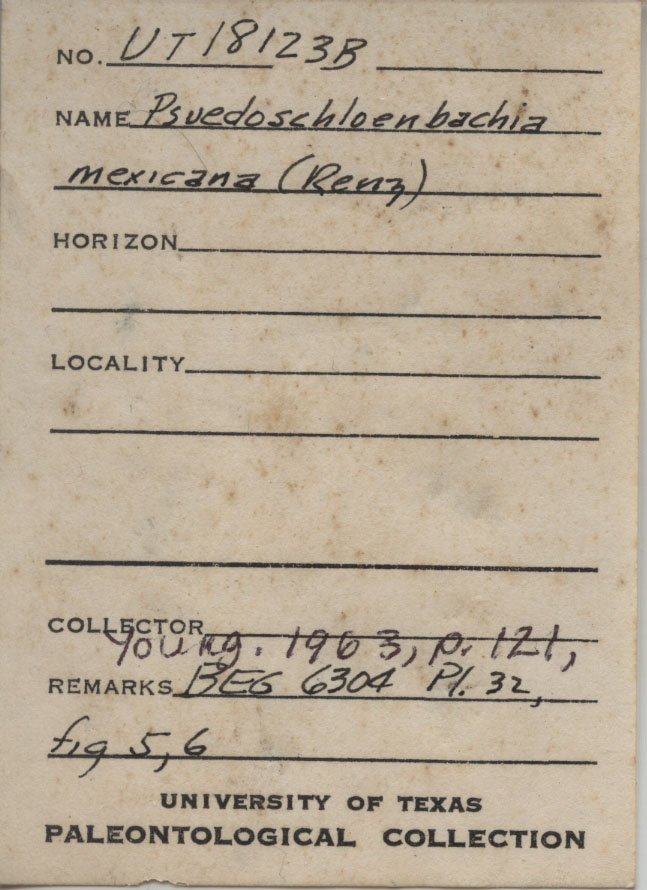 NO. UT18123B
NAME Psuedoschloenbachia
mexicana (Renz)
HORIZON
LOCALITY
COLLECTOR
Young. 1963, p. 121,
REMARKS BEG 6304 Pl. 32,
fig 5,6
UNIVERSITY OF TEXAS
PALEONTOLOGICAL COLLECTION